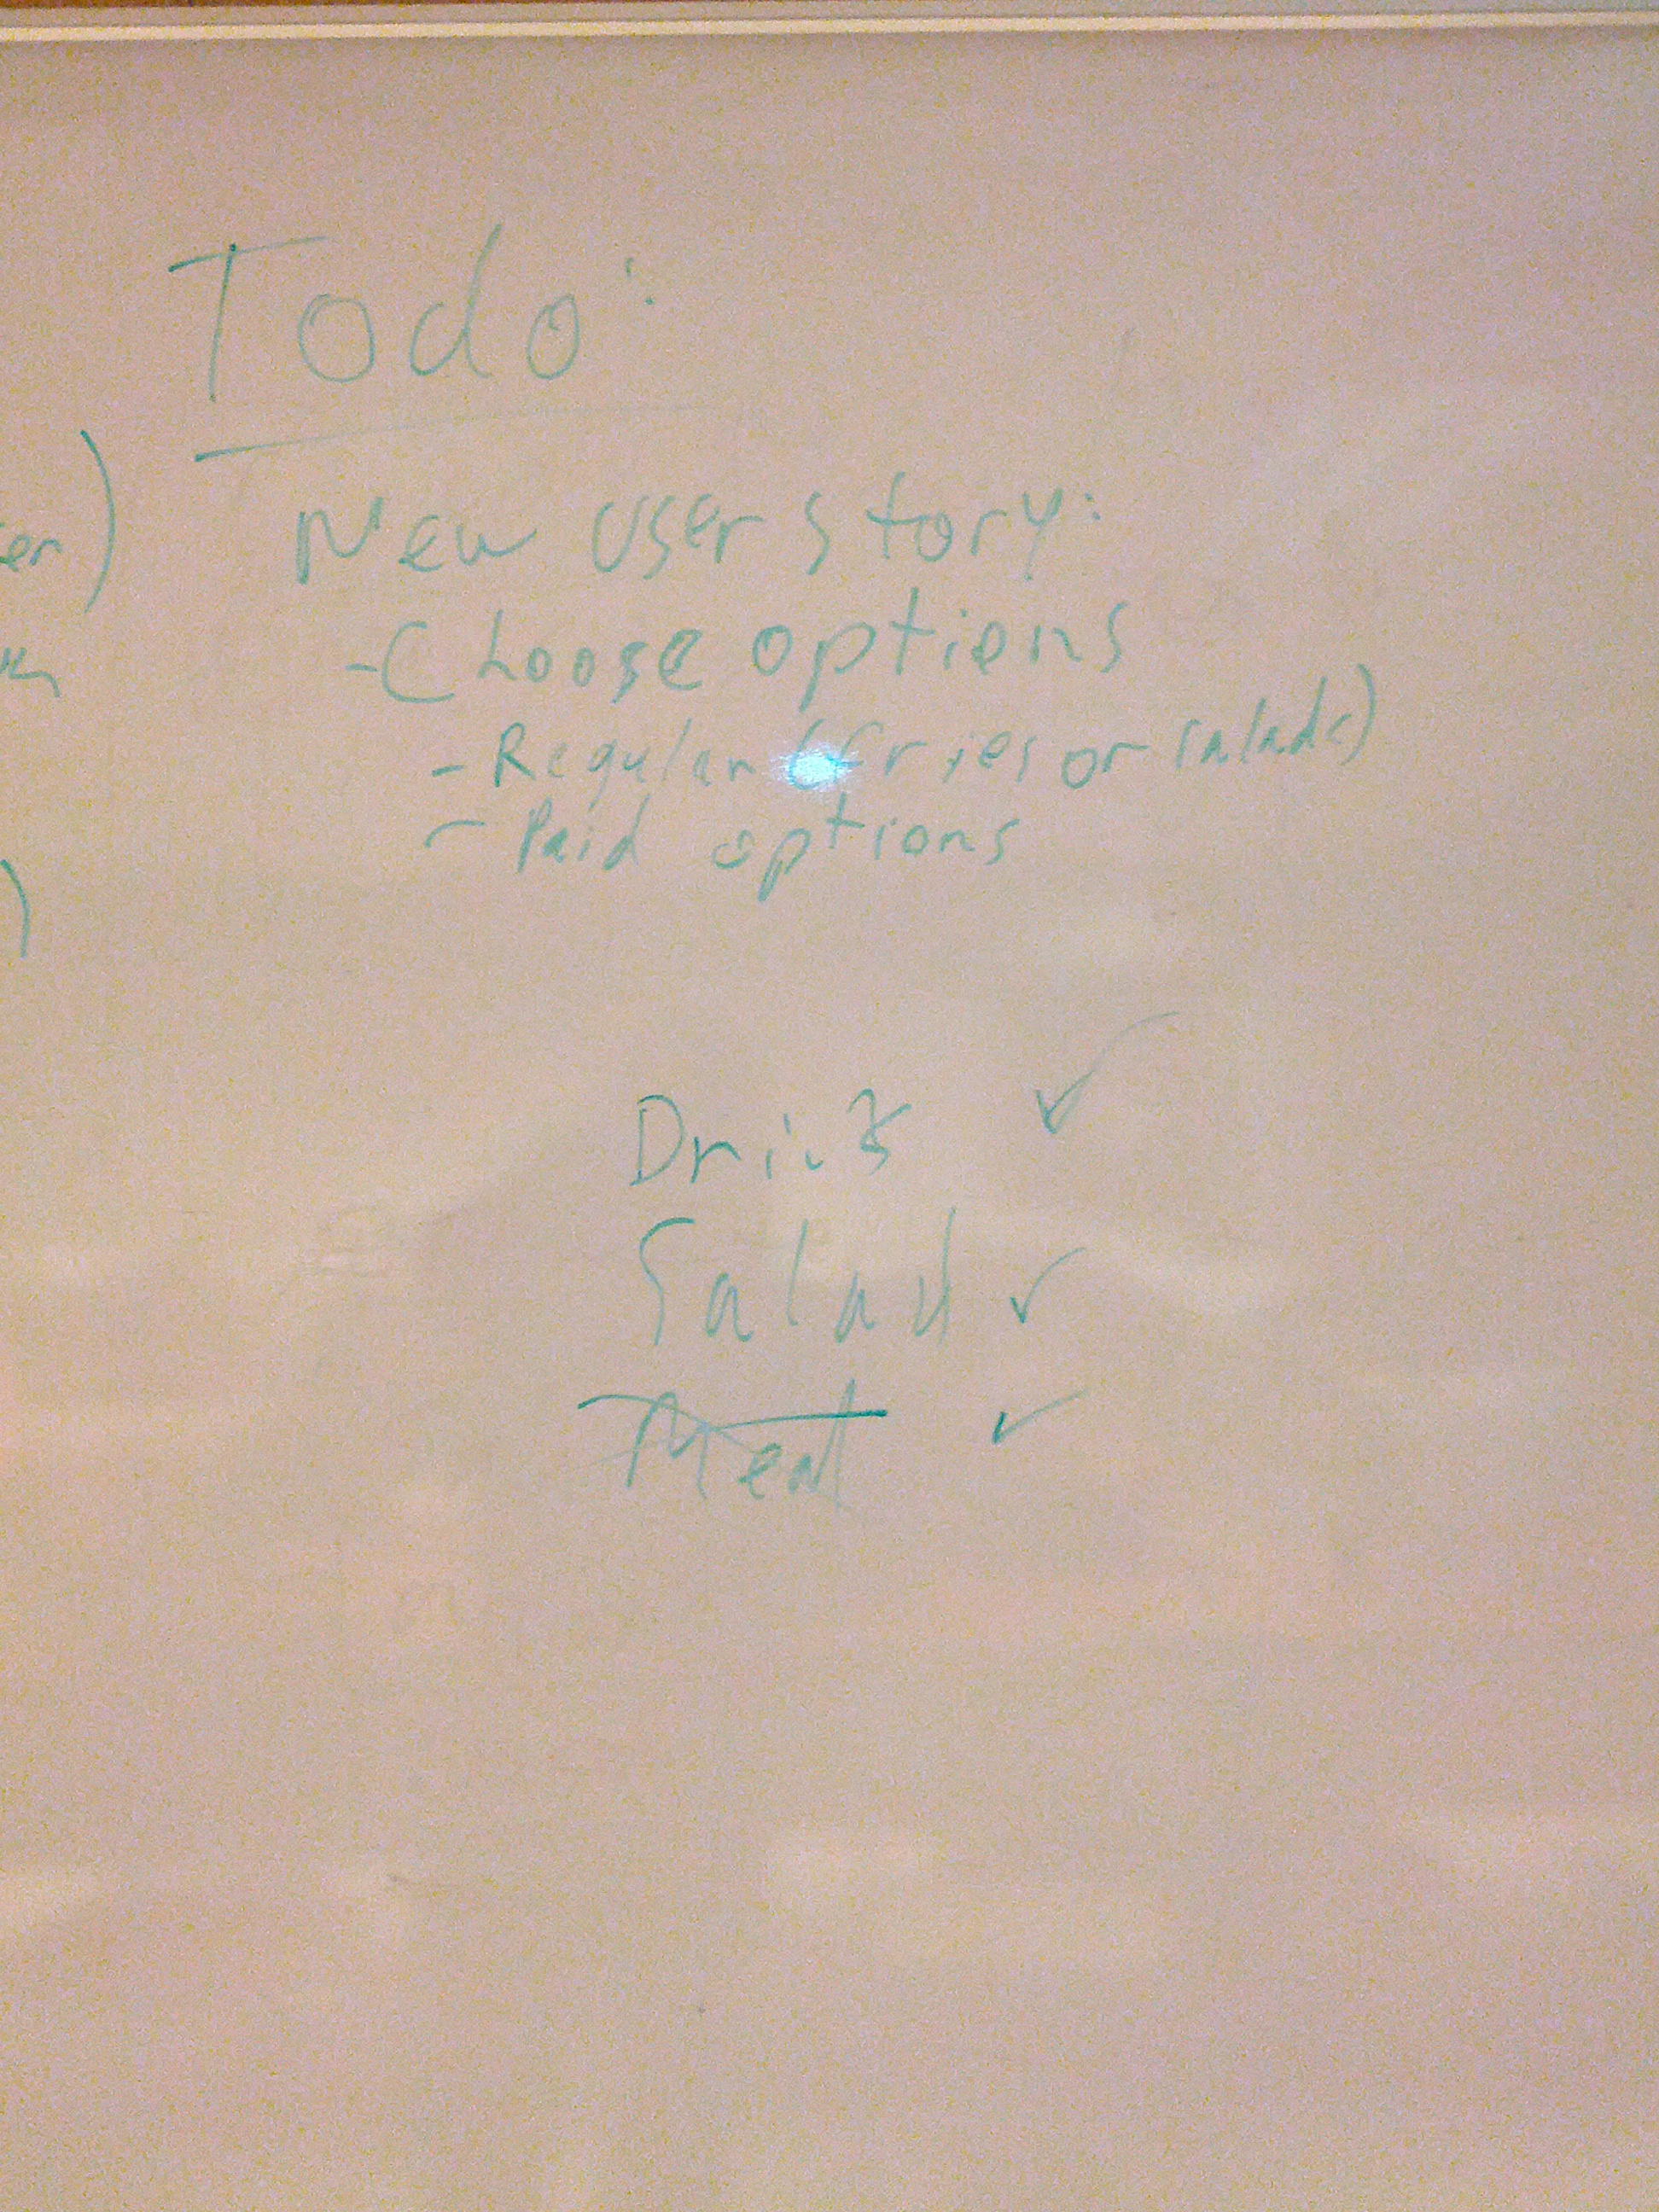 Todo:
New user story:
- Choose options
- Regular (fries or salads)
- Paid options
er)
)
Drink ✓
Salad ✓
Meat ✓